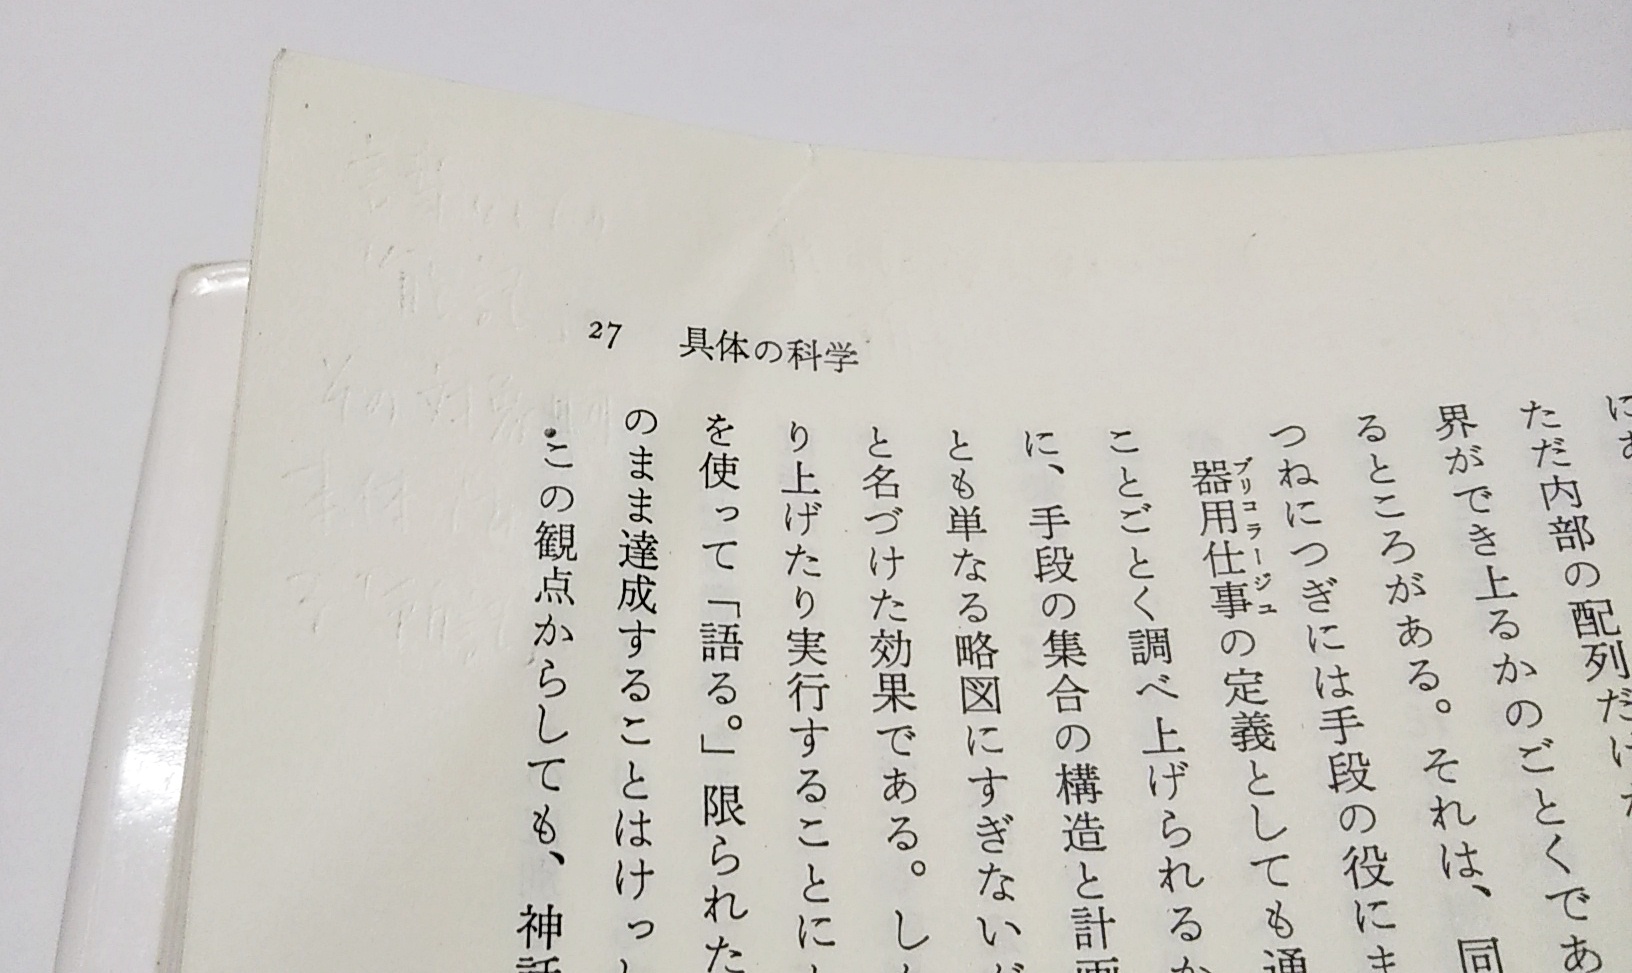 27 具体の科学
ただ内部の配列だけ
界ができ上るかのごとくであ
るところがある。それは、同
つねにつぎには手段の役にま
器用仕事の定義としても通
ブリコラージュ
ことごとく調べ上げられるか
に、手段の集合の構造と計画
とも単なる略図にすぎないが
と名づけた効果である。し
り上げたり実行することに
を使って「語る。」限られた
のまま達成することはけっ
この観点からしても、神話